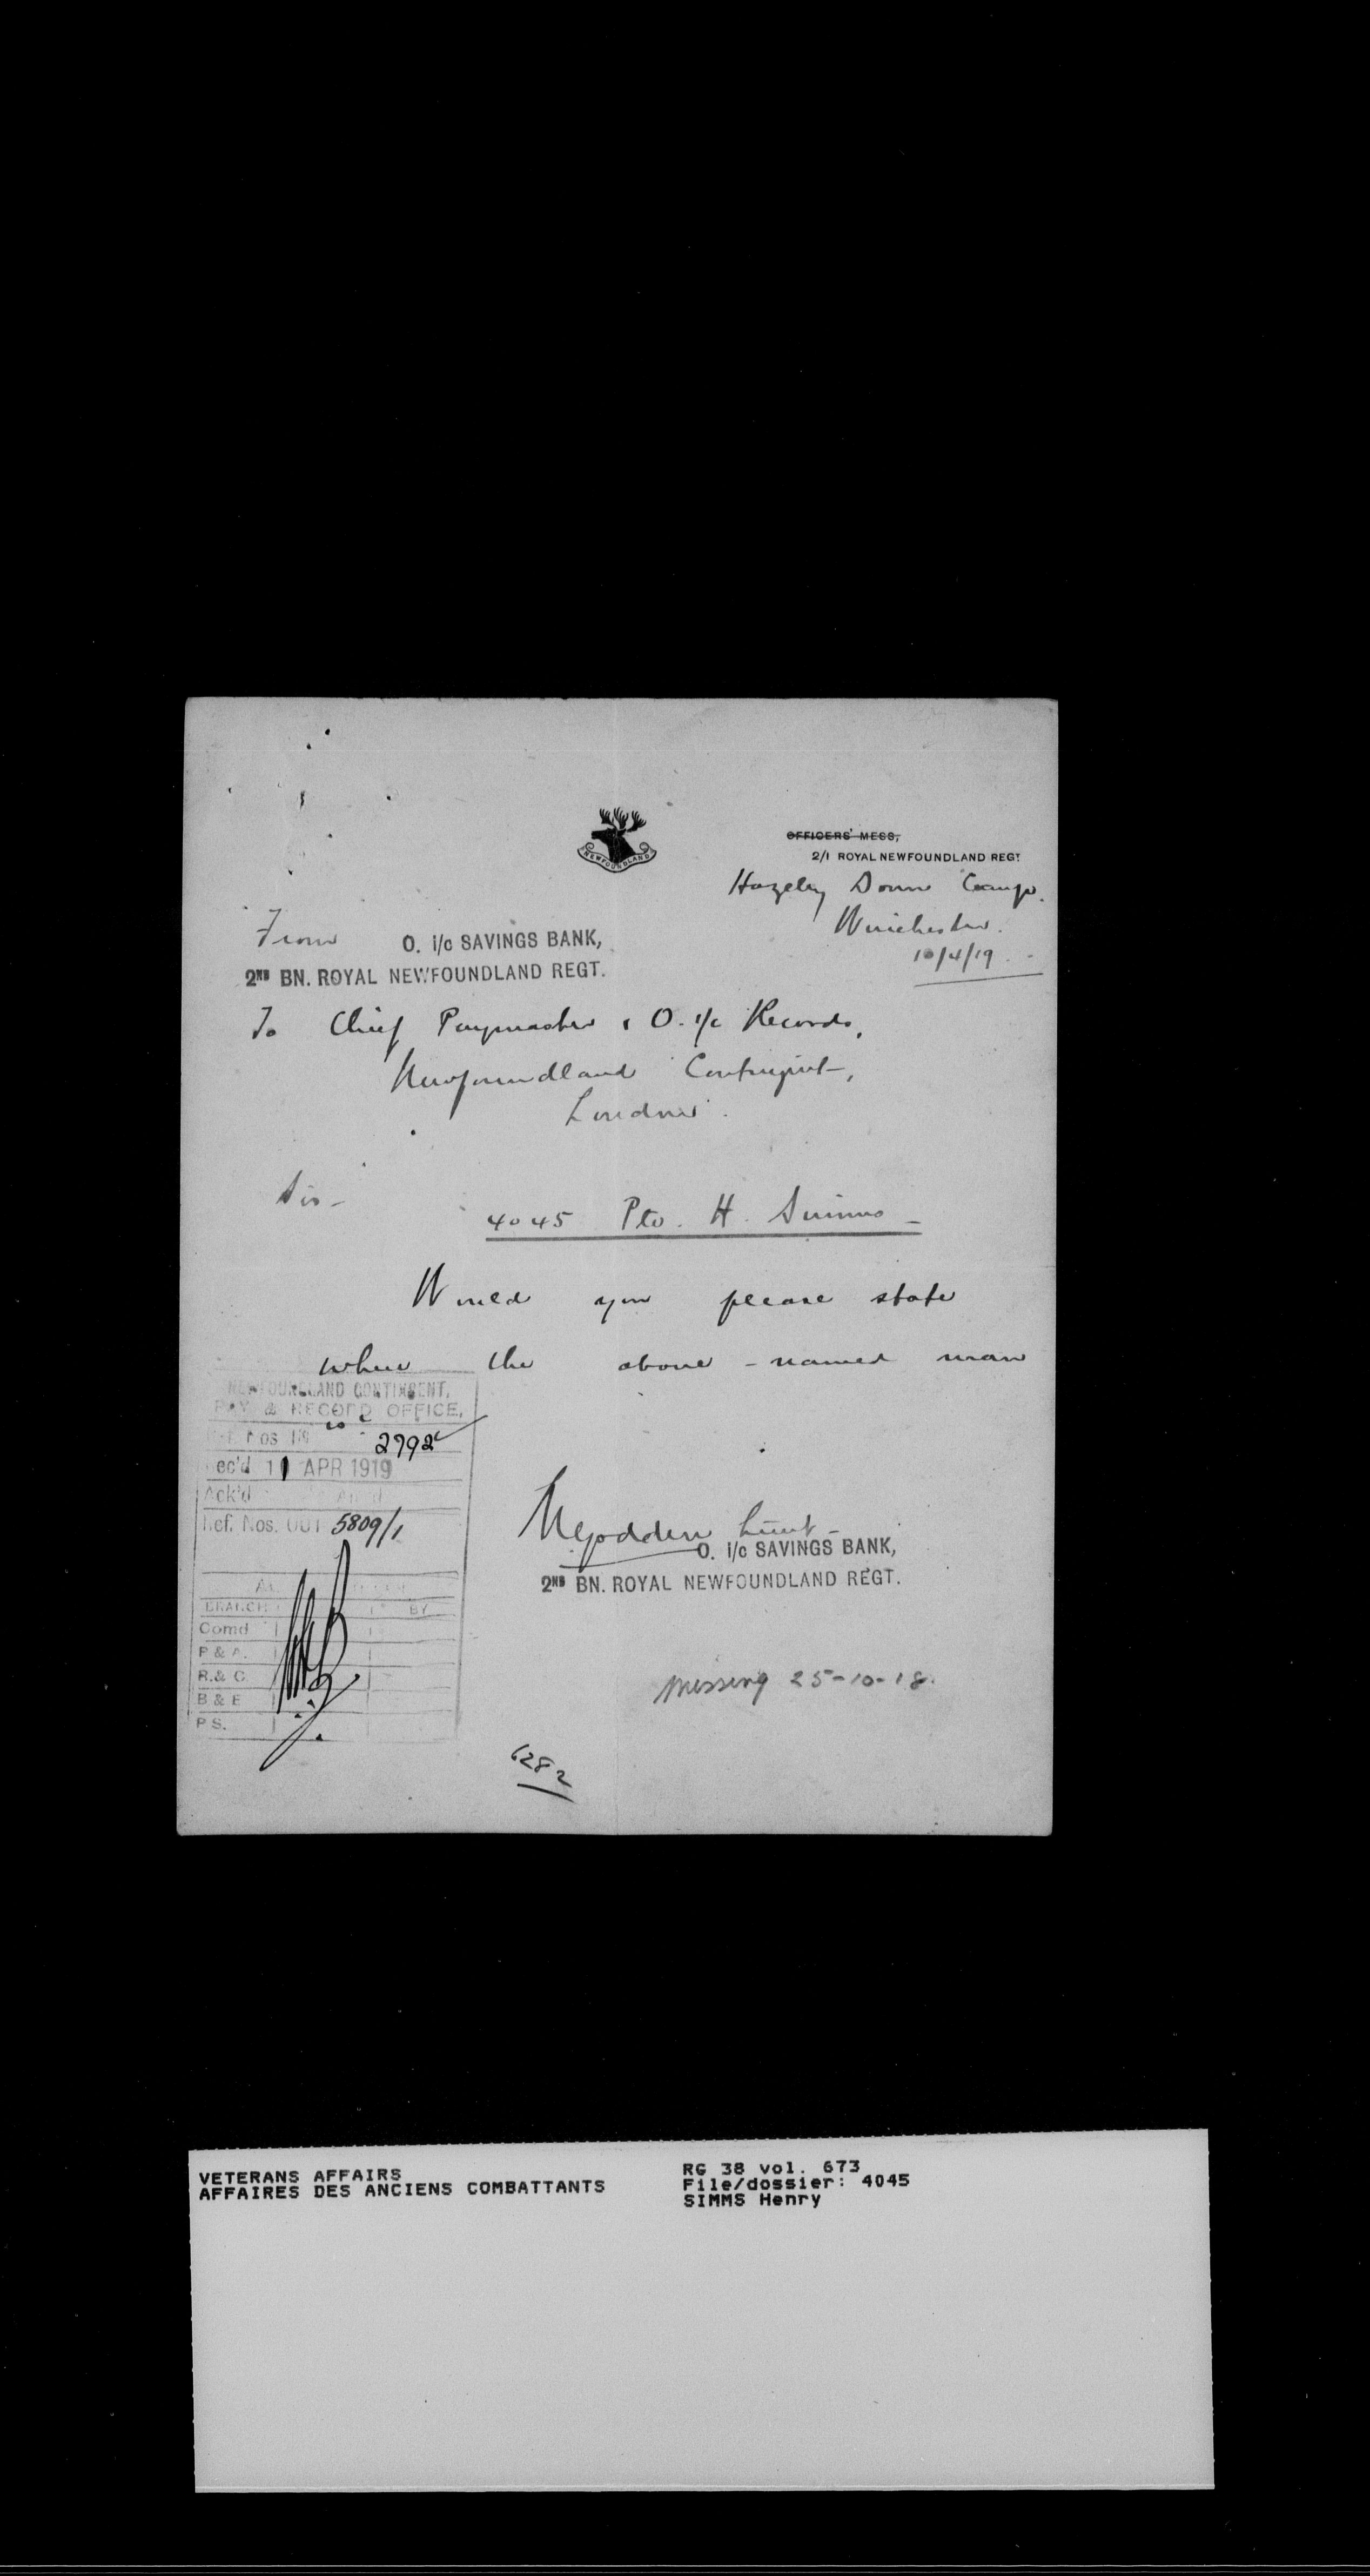 NEWFOUNDLAND
OFFICERS' MESS,
2/1 ROYAL NEWFOUNDLAND REGT
Hazeley Down Camp.
Winchester.
10/4/19
From O. i/c SAVINGS BANK,
2ND BN. ROYAL NEWFOUNDLAND REGT.
To Chief Paymaster & O. i/c Records,
Newfoundland Contingent,
London.
Sir-
4045 Pte. H. Simms
Would you please state
where the above-named man
NEWFOUNDLAND CONTINGENT,
PAY & RECORD OFFICE,
Ref. Nos. IN 2792
Rec'd 11 APR 1919
Ack'd
Ref. Nos. OUT 5809/1
BRANCH BY
Comd
P & A.
R. & C.
B & E
P S.
Lieut-
O. i/c SAVINGS BANK,
2ND BN. ROYAL NEWFOUNDLAND REGT.
Missing 25-10-18.
6282
VETERANS AFFAIRS
AFFAIRES DES ANCIENS COMBATTANTS
RG 38 vol. 673
File/dossier: 4045
SIMMS Henry